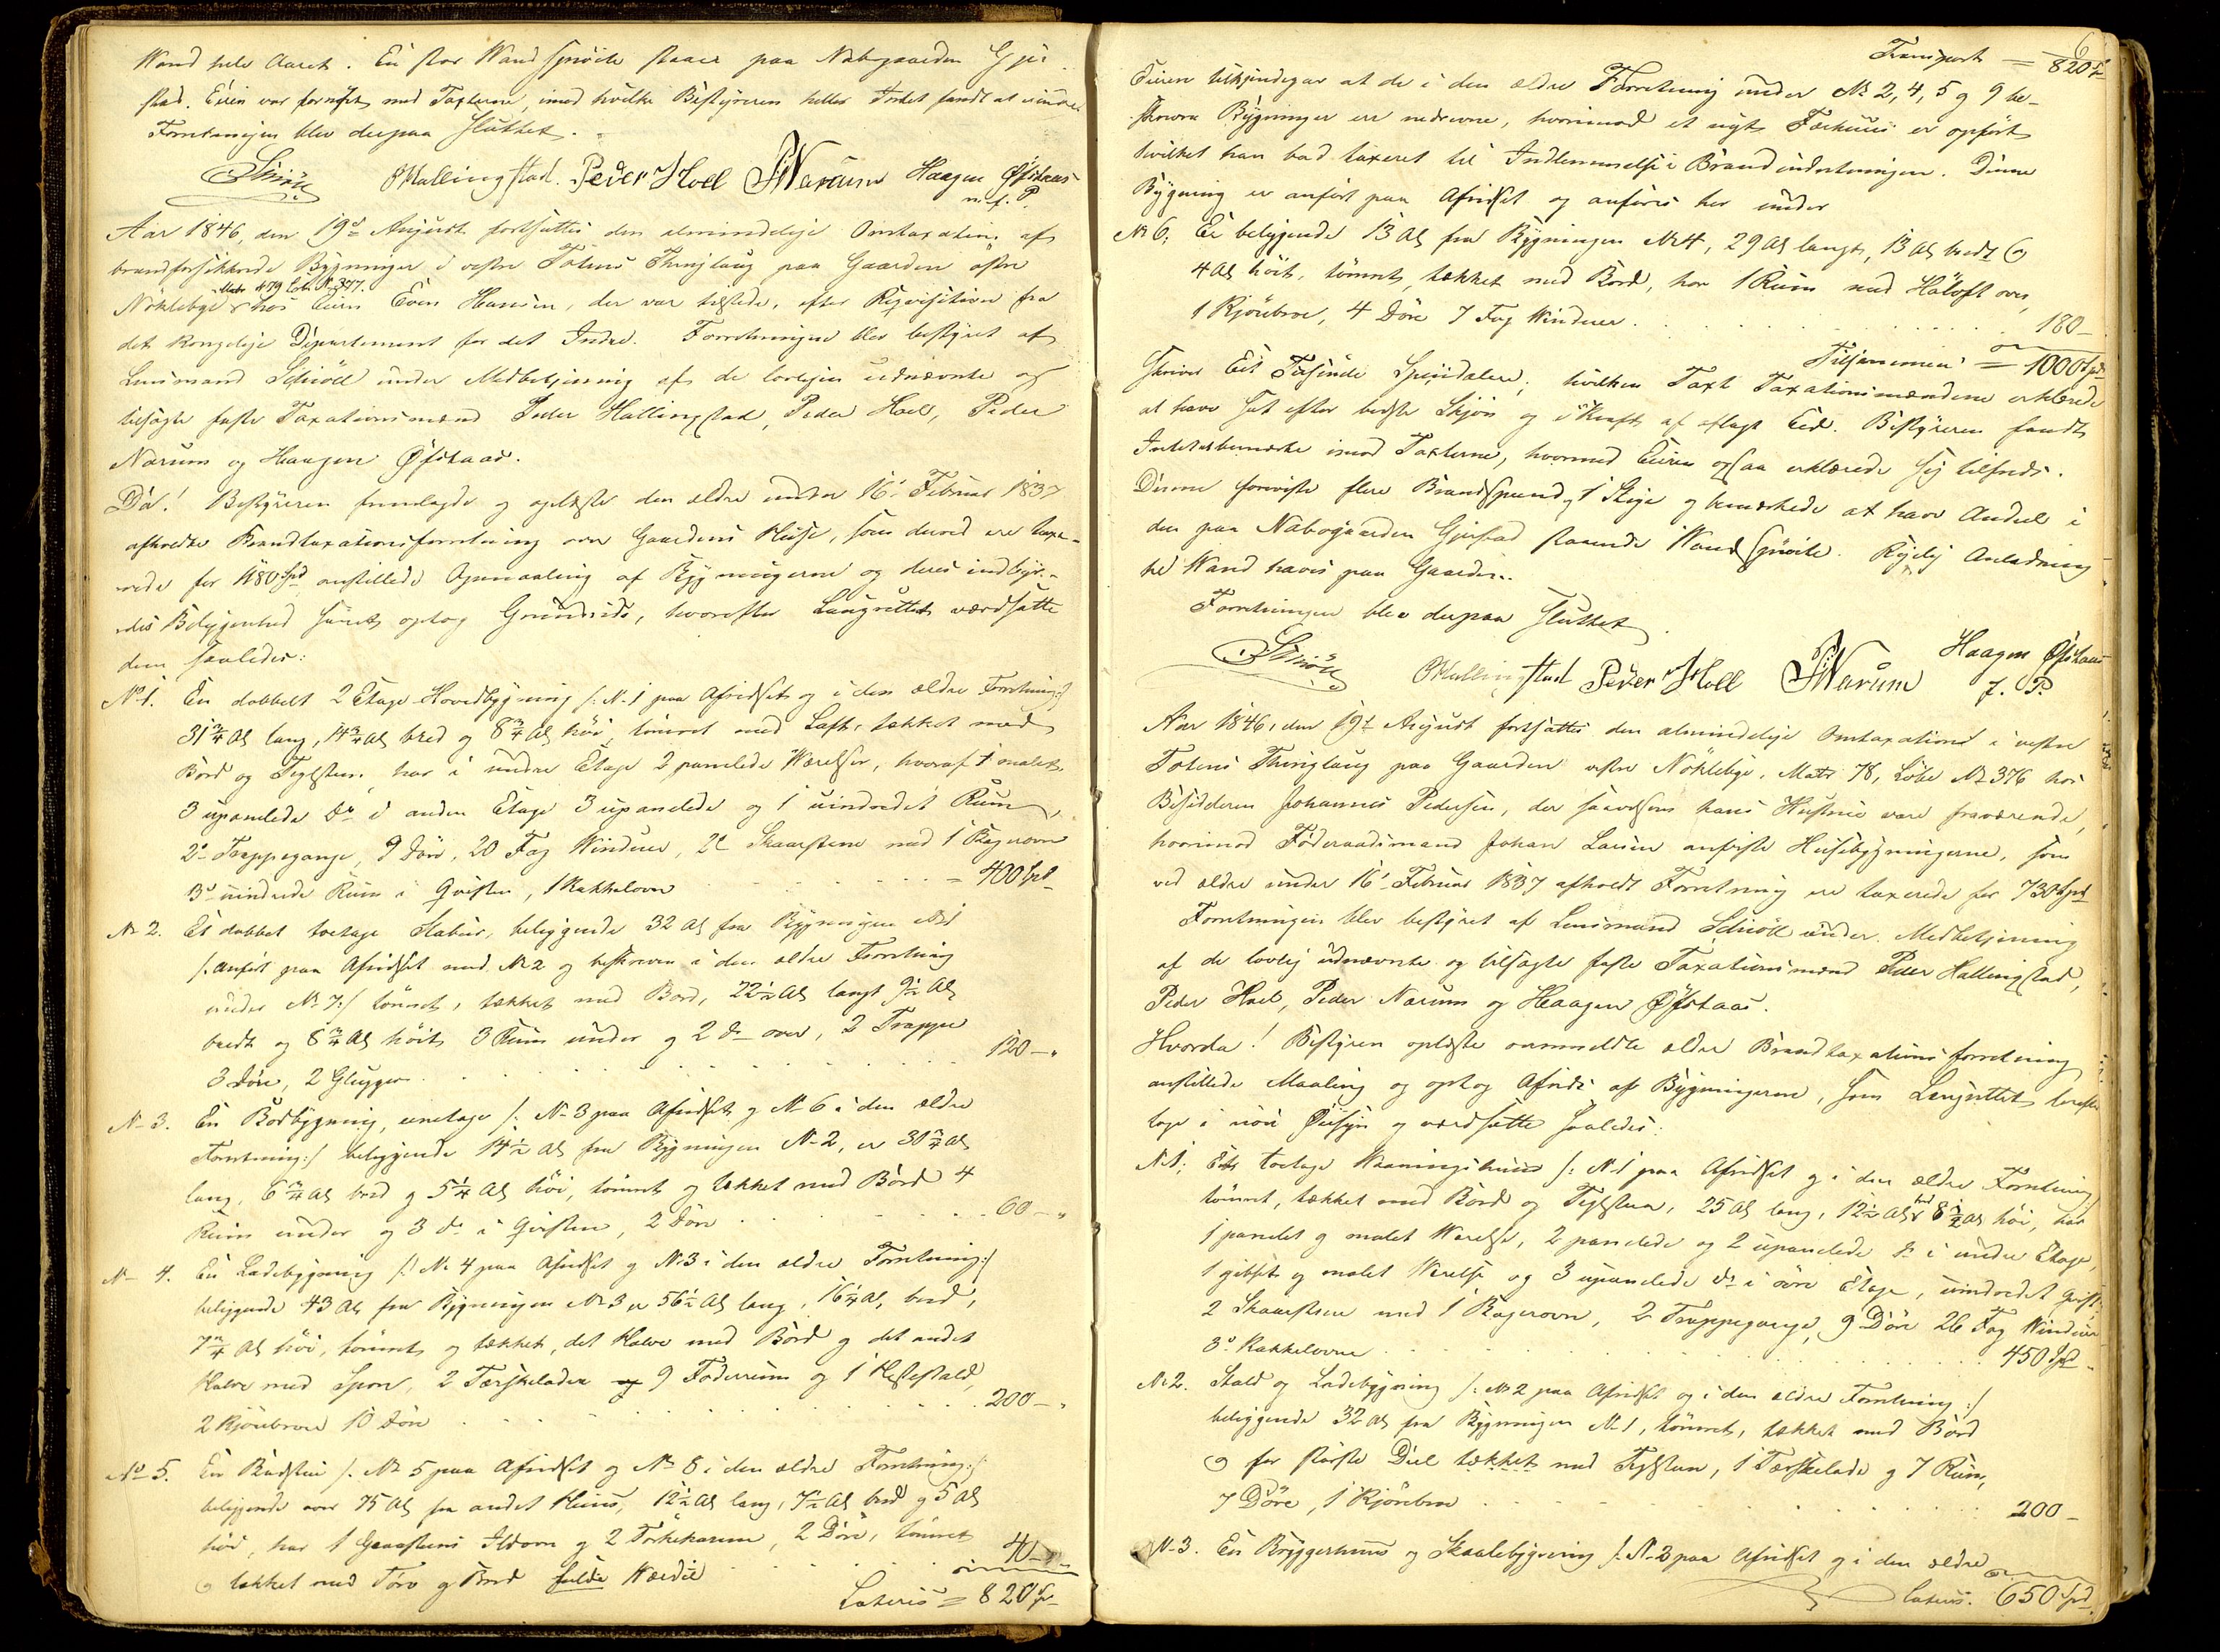 Vand hele Aaret. En stor Vandsprøite staaer paa Nabogaarden Gjer-
stad. Eieren var fornøiet med Taxterne, imod hvilke Bestyreren heller Intet fandt at erindre.
Forretningen blev derpaa sluttet.
Schiöll PHallingstad. Peder Hoel PNærum Haagen Øfstaas
m. f. P.
Aar 1846, den 19de August fortsattes den almindelige Omtaxation af
brandforsikkrede Bygninger i vestre Totens Thinglaug paa Gaarden østre
Matr 479 Løbe No 377.
Nøklebye hos Eieren Even Hansen, der var tilstede, efter Reqvisition fra
det kongelige Departement for det Indre. Forretningen blev bestyret af
Lensmand Schiöll under Medbetjening af de lovligen udnævnte og
tilsagte faste Taxationsmænd Peder Hallingstad, Peder Hoel, Peder
Nærum og Haagen Øfstaas.
Da! Bestyreren fremlagde og oplæste den ældre under 16de Februar 1837
afholdte Brandtaxationsforretning over Gaardens Huse, som derved ere taxe-
rede for 1180 Spd anstillede Opmaaling af Bygningerne og deres indbyr-
des Beliggenhed samt optog Grundrids, hvorefter Laugrettet værdsatte
dem saaledes:
No 1. En dobbelt 2 Etages Hovedbygning /: No 1 paa Afridset og i den ældre Forretning :/
31¾ Al lang, 14¾ Al bred og 8¾ Al høi, tømret med Loft, tækket med
Bord og Teglsteen, har i undre Etage 2 panelede Værelser, hvoraf 1 malet,
3 upanelede do i anden Etage 3 upanelede og 1 uindredet Rum,
2de Trappegange, 9 Døre, 20 Fag Vinduer, 2de Skaarstene med 1 Bagerovn
3de uindrede Rum i Qvisten, 1 Kakkelovn = 400 Spd
No 2. Et dobbelt toetages Stabur, beliggende 32 Al fra Bygningen No 1
/: anført paa Afridset med No 2 og beskreven i den ældre Forretning
under No 7 :/ tømret, tækket med Bord, 22½ Al langt 9½ Al
bredt og 8¾ Al høit, 3 Rum under og 2 do over, 2 Trapper
3 Døre, 2 Glugger 120 — "
No 3. En Bodbygning, eenetages /: No 3 paa Afridset og No 6 i den ældre
Forretning :/ beliggende 14½ Al fra Bygningen No 2, er 31¾ Al
lang, 6¾ Al bred og 5¼ Al høi, tømret og tækket med Bord 4
Rum under og 3 do i Qvisten, 2 Døre 60 — "
No 4. En Ladebygning /: No 4 paa Afridset og No 3 i den ældre Forretning :/
beliggende 43 Al fra Bygningen No 3 er 56½ Al lang, 16¼ Al, bred,
7¾ Al høi, tømret og tækket, det Halve med Bord og det andet
Halve med Spon, 2 Tærskelader og 9 Foderrum og 1 Hestestald,
2 Kjørebroer 10 Døre 200 — "
No 5. En Badstue /: No 5 paa Afridset og No 8 i den ældre Forretning :/
beliggende over 75 Al fra andet Huus, 12½ Al lang, 7½ Al bred og 5 Al
høi, har 1 Graasteens Ildovn og 2 Tørkekarme, 2 Døre, tømret
og tækket med Torv og Bord fulde Værdie 40 —
Lateris = 820 Sp
6
Transport = 820 Sp
Eieren tilkjendegav at de i den ældre Forretning under No 2, 4, 5 og 9 be-
skrevne Bygninger ere nedrevne, hvorimod et nyt Fæehuus er opført
hvilket han bad taxeret til Indlemmelse i Brandindretningen. Denne
Bygning er anført paa Afridset og anføres her under
No 6. Er beliggende 13 Al fra Bygningen No 4, 29 Al langt, 13 Al bredt og
4 Al høit, tømret, tækket med Bord, har 1 Rum med Høloft over,
1 Kjørebroe, 4 Døre 7 Fag Vinduer 180 —
Tilsammen = 1000 Spd
skriver Eet Tusinde Speciedaler, hvilken Taxt Taxationsmændene erklærede
at have sat efter bedste Skjøn og i Kraft af aflagt Eed. Bestyreren fandt
Intet at bemærke imod Taxterne, hvormed Eieren ogsaa erklærede sig tilfreds.
Denne foreviste flere Brandspand, 1 Stige og bemærkede at have Andeel i
den paa Nabogaarden Gjerstad staaende Vandsprøite. Rigelig Anledning
til Vand haves paa Gaarden.
Forretningen blev derpaa sluttet.
Schiöll PHallingstad Peder Hoel PNærum Haagen Øfstaas
f. P.
Aar 1846, den 19de August fortsattes den almindelige Omtaxation i vestre
Totens Thinglaug paa Gaarden vestre Nøklebye, Matr 78, Løbe No 376 hos
Besidderen Johannes Pedersen, der saavelsom hans Hustrue vare fraværende,
hvorimod Føderaadsmand Johan Larsen anviste Husebygningerne, som
ved ældre under 16de Februar 1837 afholdt Forretning ere taxerede for 730 Spd
Forretningen blev bestyret af Lensmand Schiöll under Medbetjening
af de lovlig udnævnte og tilsagte faste Taxationsmænd Peder Hallingstad,
Peder Hoel, Peder Nærum og Haagen Øfstaas.
Hvorda! Bestyreren oplæste ovenmeldte ældre Brandtaxationsforretning
anstillede Maaling og optog Afrids af Bygningerne, som Laugrettet derefter
toge i nøie Øiesyn og værdsatte saaledes:
No 1. Et toetages Vaaningshuus /: No 1 paa Afridset og i den ældre Forretning :/
tømret, tækket med Bord og Teglsteen, 25 Al lang, 12½ Al bred 8½ Al høi, har
1 panelet og malet Værelse, 2 panelede og 2 upanelede do i undre Etage,
1 gibset og malet Værelse og 3 upanelede do i øvre Etage, uindredet Qvist,
2 Skaarstene med 1 Bagerovn, 2 Trappegange, 9 Døre 26 Fag Vinduer
3de Kakkelovne 450 Spd
No 2. Stald og Ladebygning /: No 2 paa Afridset og i den ældre Forretning :/
beliggende 32 Al fra Bygningen No 1, tømret, tækket med Bord
og for største Deel tækket med Teglsteen, 1 Tærskelade og 7 Rum,
7 Døre, 1 Kjørebroe 200 —
No 3. En Bryggerhuus og Skaalebygning /: No 3 paa Afridset og i den ældre
Lateris. 650 Spd.